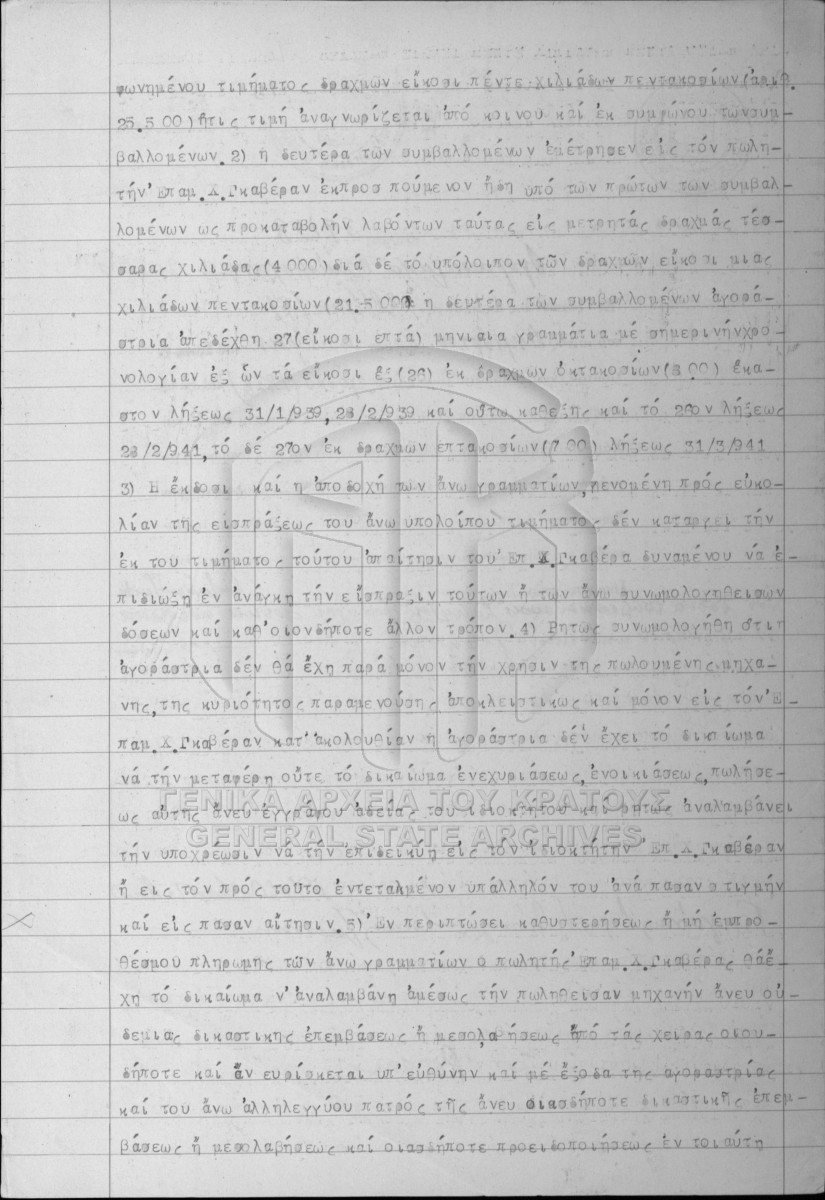 φωνημένου τιμήματος δραχμών είκοσι πέντε χιλιάδων πεντακοσίων(ἀριθ.
25.500) ἥτις τιμή ἀναγνωρίζεται ἀπό κοινου καί ἐκ συμφώνου τωνσυμ-
βαλλομένων. 2) η δευτέρα των συμβαλλομένων ἐμέτρησεν εἰς τόν πωλη-
τήν Ἐπαμ.Χ.Γκαβέραν ἐκπροσ πούμενον ἤδη ὑπό των πρώτων των συμβαλ-
λομένων ως προκαταβολήν λαβόντων ταύτας εἰς μετρητάς δραχμάς τέσ-
σαρας χιλιάδας(4000)διά δέ τό υπόλοιπον τῶν δραχμών είκοσι μιας
χιλιάδων πεντακοσίων(21.500) η δευτέρα των συμβαλλομένων ἀγορά-
στρια ἀπεδέχθη 27(είκοσι επτά) μηνιαια γραμμάτια μέ σημερινήνχρο-
νολογίαν ἐξ ὧν τά είκοσι ἕξ(26) ἐκ δραχμων ὀκτακοσίων(800) ἕκα-
στον λήξεως 31/1/939,28/2/939 καί οὕτω καθεξης καί τό 26ον λήξεως
28/2/941,τό δέ 27ον ἐκ δραχμων επτακοσίων(700) λήξεως 31/3/941
3) Η ἔκδοσι καί η ἀποδοχή των ἄνω γραμματίων,γενομένη πρός εὐκο-
λίαν της εἰσπράξεως του ἄνω υπολοίπου τιμήματος δέν καταργει τήν
ἐκ του τιμήματος τούτου ἀπαίτησιν του Ἐπ.Χ.Γκαβέρα δυναμένου νά ἐ-
πιδιώξη ἐν ἀνάγκη τήν εἴσπραξιν τούτων ἤ των ἄνω συνωμολογηθεισων
δόσεων καί καθ'οιονδήποτε ἄλλον τρόπον. 4) Ρητως συνωμολογήθη ὅτιη
ἀγοράστρια δέν θά ἔχη παρά μόνον τήν χρησιν της πωλουμένης μηχα-
νης,της κυριότητος παραμενούσης ἀποκλειστικως καί μόνον εἰς τόν Ἐ-
παμ.Χ.Γκαβέραν κατ'ἀκολουθίαν η ἀγοράστρια δέν ἔχει τό δικαίωμα
νά τήν μεταφέρη οὔτε τό δικαίωμα ἐνεχυριάσεως,ἐνοικιάσεως,πωλήσε-
ως αὐτης ἄνευ ἐγγράφου ἀδείας του ιδιοκτήτου καί ρητως ἀναλαμβάνει
τήν υποχρέωσιν νά τήν επιδεικνύη εἰς τόν ιδιοκτήτην Ἐπ.Χ.Γκαβέραν
ἤ εις τόν πρός τουτο ἐντεταλμένον υπάλληλόν του ἀνά πασαν στιγμήν
καί εἰς πασαν αἴτησιν.5) Ἐν περιπτώσει καθυστερήσεως ἤ μή ἐμπρο-
θέσμου πληρωμης τῶν ἄνω γραμματίων ο πωλητής Ἐπαμ.Χ.Γκαβέρας θάἔ-
χη τό δικαίωμα ν'ἀναλαμβάνη ἀμέσως τήν πωληθεισαν μηχανήν ἄνευ οὐ-
δεμιας δικαστικης ἐπεμβάσεως ἤ μεσολαβήσεως ἀπό τάς χειρας οιου-
δήποτε καί ἄν ευρίσκεται υπ'εὐθύνην καί μέ ἔξοδα της αγοραστρίας
καί του ἄνω ἀλληλεγγύου πατρός τῆς ἄνευ οιασδήποτε δικαστικῆς ἐπεμ-
βάσεως ἤ μεσολαβήσεως καί οιασδήποτε προειδοποιήσεως ἐν τοιαύτη
ΓΕΝΙΚΑ ΑΡΧΕΙΑ ΤΟΥ ΚΡΑΤΟΥΣ
GENERAL STATE ARCHIVES